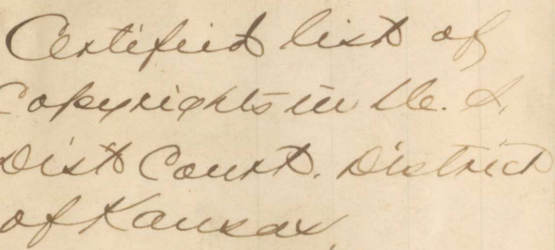 Certified list of
Copyrights in U. S.
Dist Court. District
of Kansas,